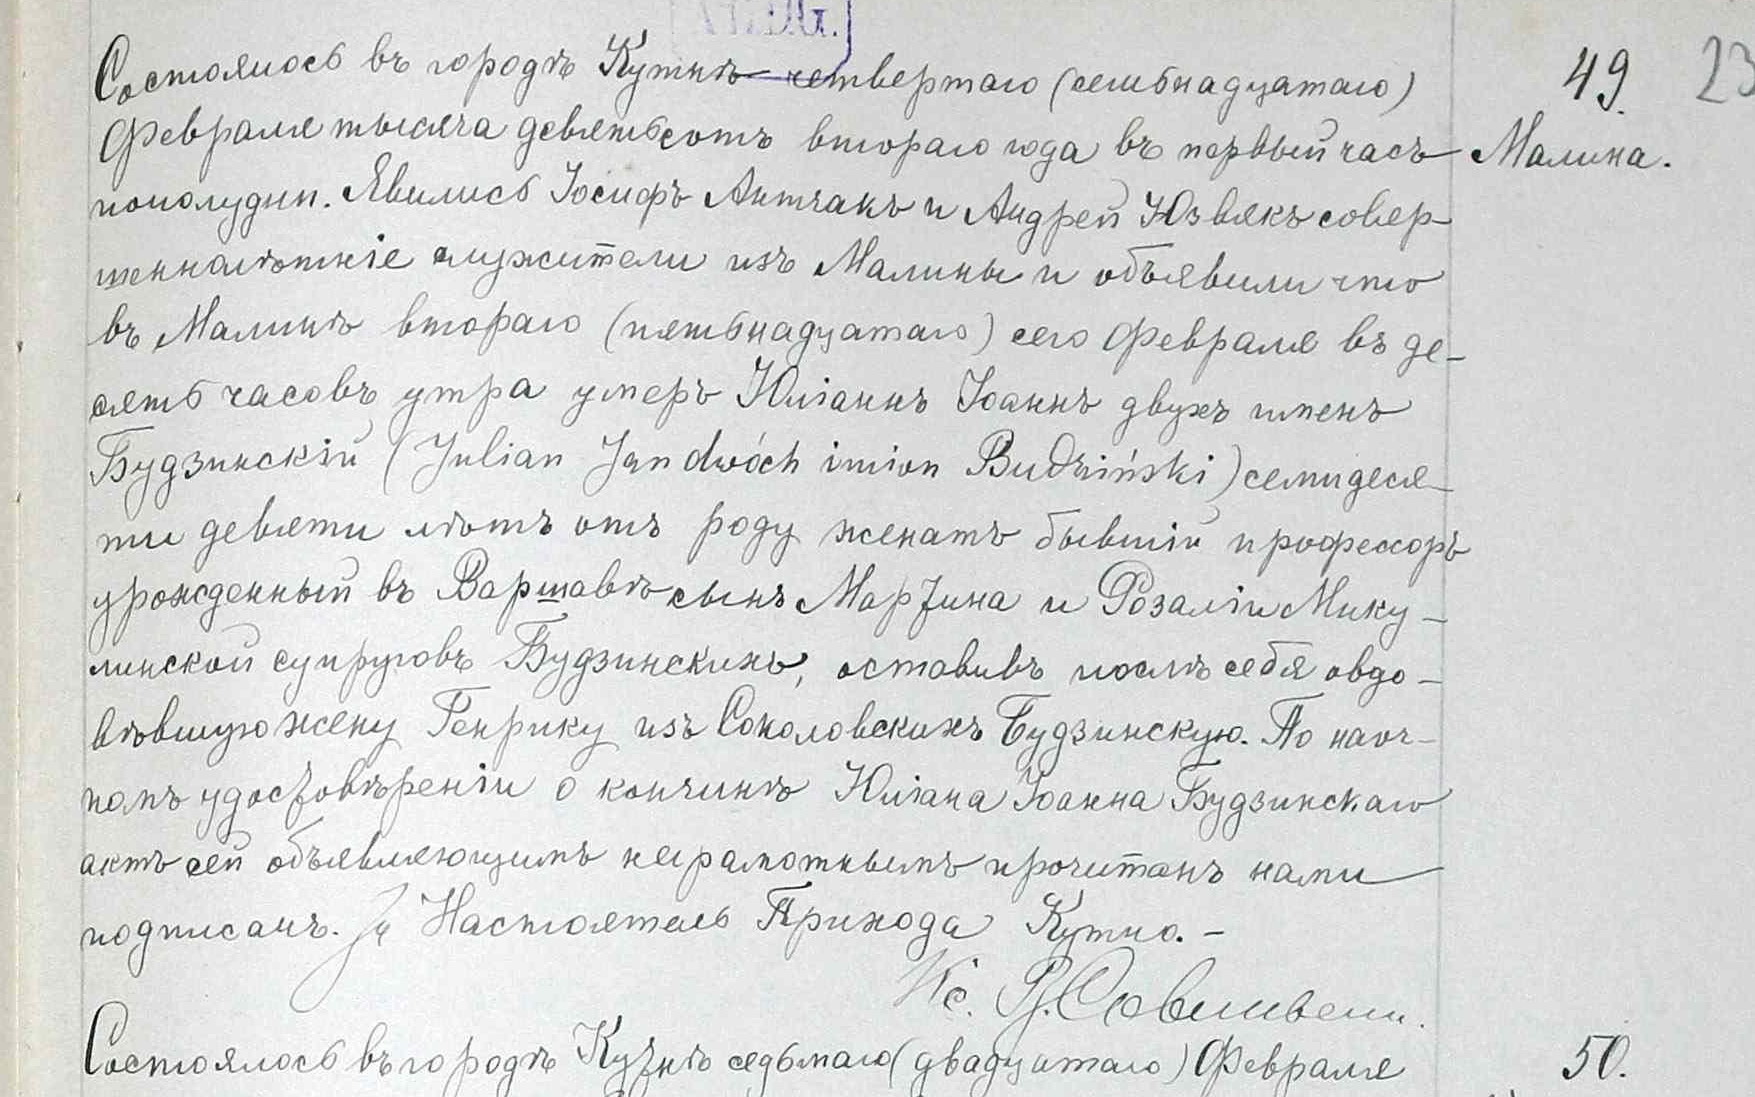 49.
23
Малина.
Состоялось въ городѣ Кутнѣ четвертаго (семьнадцатаго)
Февраля тысяча девятьсотъ втораго года въ первый часъ
пополудни. Явились Іосифъ Антчакъ и Андрей Юзвякъ совер-
шеннолѣтніе служители изъ Малины и объявили что
въ Малинѣ втораго (пятьнадцатаго) сего Февраля въ де-
сять часовъ утра умеръ Юліанъ Іоаннъ двухъ именъ
Будзинскій (Julian Jan dwóch imion Budziński) семидеся-
ти девяти лѣтъ отъ роду женатъ бывшій профессоръ
урожденный въ Варшавѣ сынъ Мартина и Розаліи Мику-
линской супруговъ Будзинскихъ, оставивъ послѣ себя овдо-
вѣвшую жену Генрику изъ Соколовскихъ Будзинскую. По наоч-
номъ удостовѣреніи о кончинѣ Юліана Іоанна Будзинскаго
актъ сей объявляющимъ неграмотнымъ прочитанъ нами
подписанъ. За Настоятель Прихода Кутно. -
Кс.
Состоялось въ городѣ Кутнѣ седьмаго (двадцатаго) Февраля
50.